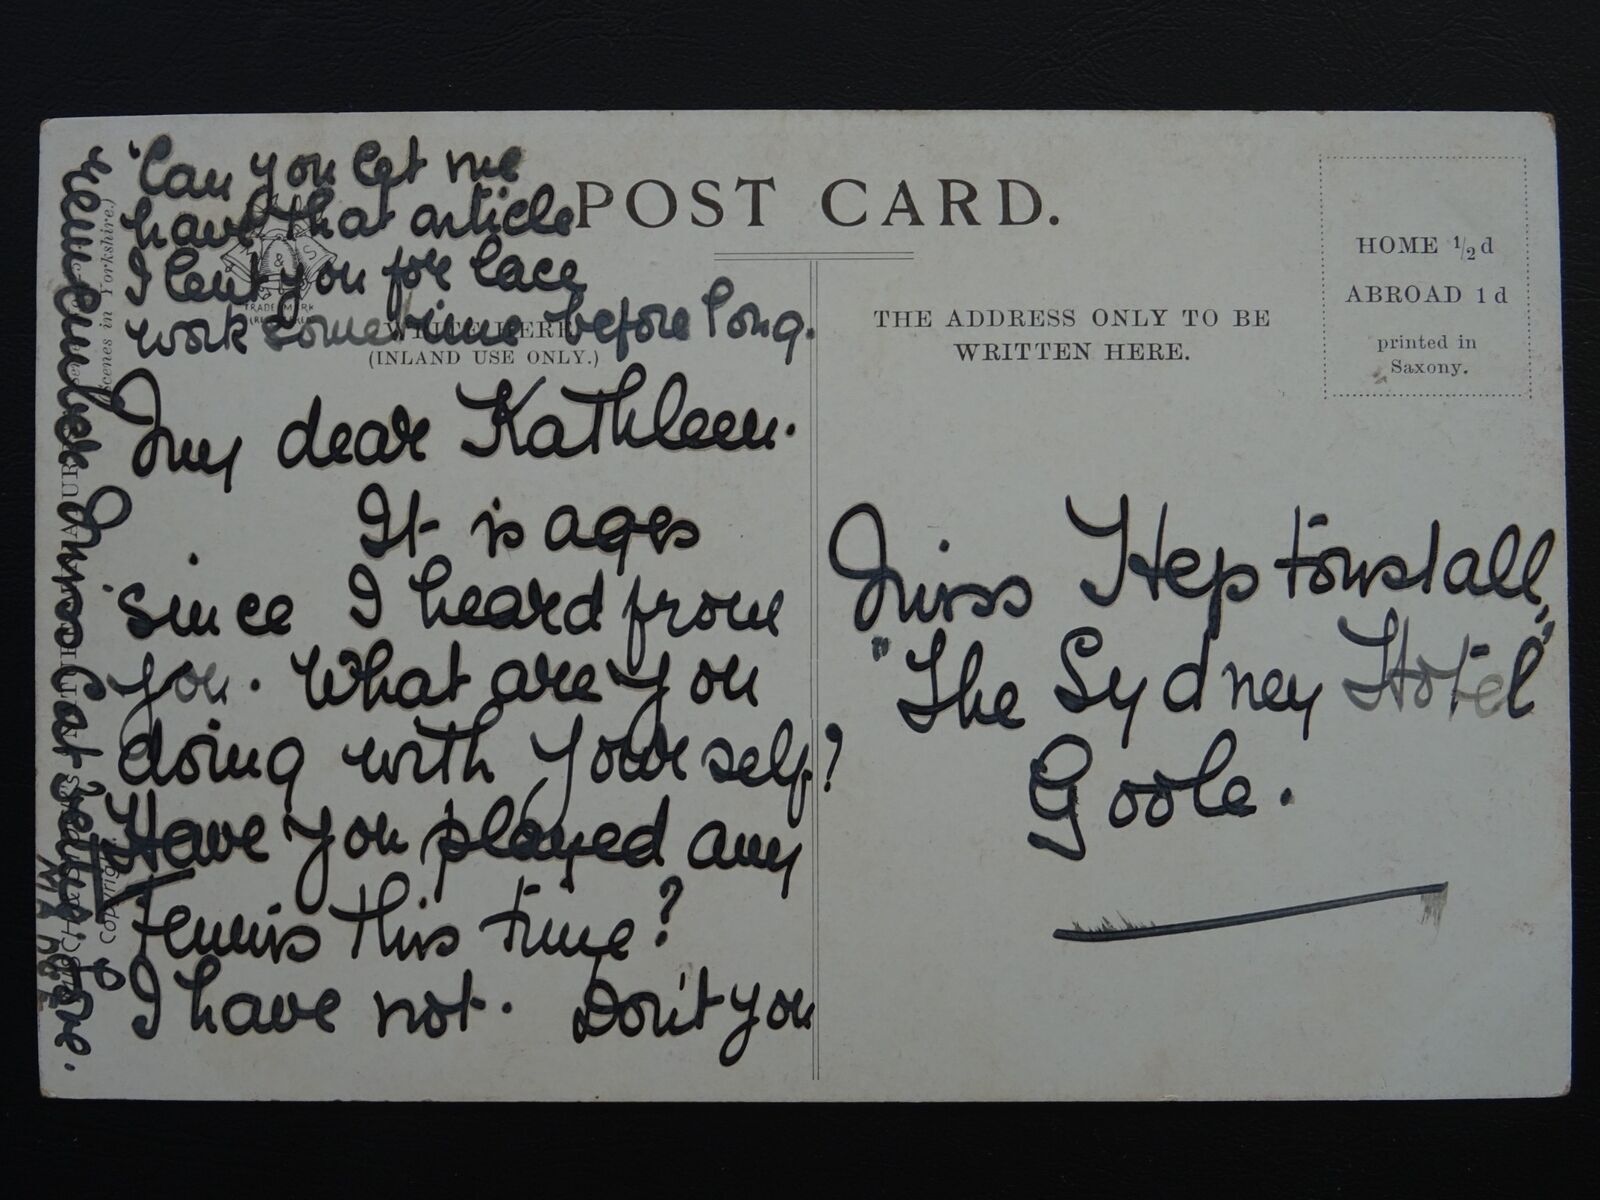 POST CARD.
HOME 1/2 d
ABROAD 1 d
printed in
Saxony.
THE ADDRESS ONLY TO BE
WRITTEN HERE.
WRITE HERE
(INLAND USE ONLY.)
TRADE MARK
Scenes in Yorkshire.)
Copyright
Can you let me
have that article
I lent you for lace
work sometime before long.
My dear Kathleen.
It is ages
since I heard from
you. What are you
doing with yourself?
Have you played any
Tennis this time?
I have not. Don't you
remember Miss Cat
Miss Heptonstall,
"The Sydney Hotel"
Goole.